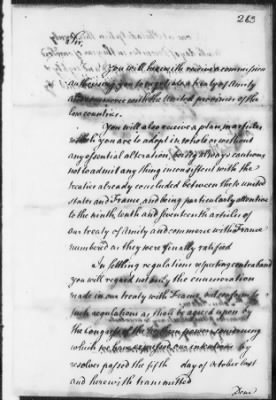 263
Sir,
You will herewith receive a commission
authorising you to negotiate a treaty of Amity
and commerce with the United provinces of the
low countries.
You will also receive a plan, marked
which you are to adopt in whole or without
any essential alteration, being always cautious
not to admit any thing inconsistent with the
treaties already concluded between the united
states and France, and being particularly attentive
to the ninth, tenth and seventeenth articles of
our treaty of Amity and commerce with France
numbered as they were finally ratified
In settling regulations respecting contraband
you will regard not only the enumeration
made in our treaty with France, but conform to
such regulations as shall be agreed upon by
the Congress of the northern powers, concerning
which we have expressed our intentions by
resolves passed the fifth day of October last
and herewith transmitted